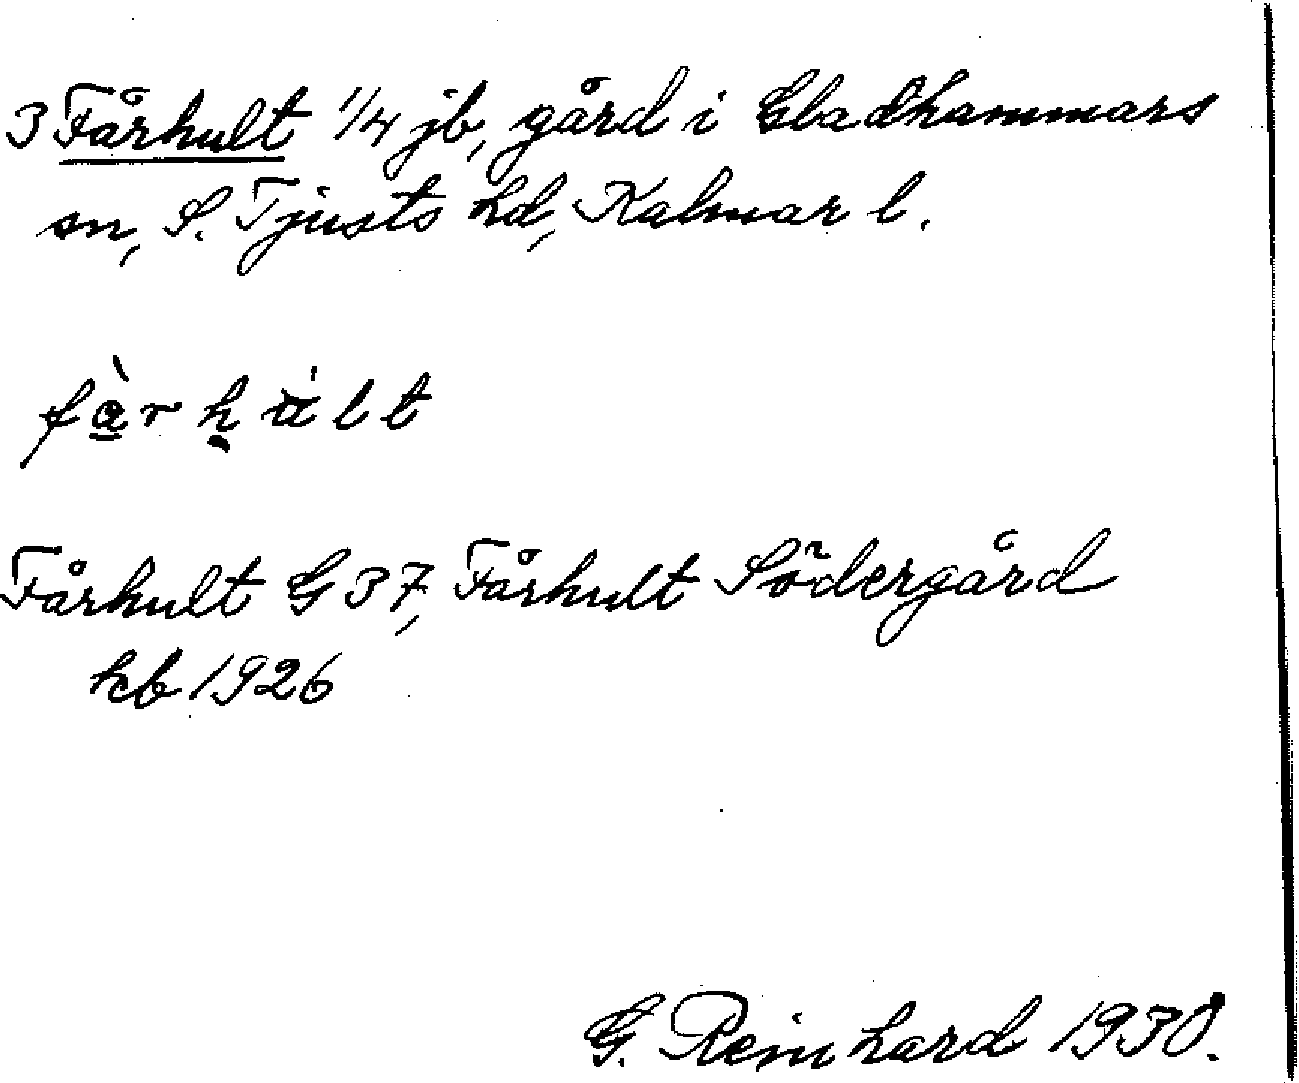 3 Fårhult 1/4 jb, gård i Gladhammars
sn, S. Tjusts hd, Kalmar l.
fàrhúlt
Fårhult G 37, Fårhult Södergård
kb 1926
G. Reinhard 1930.